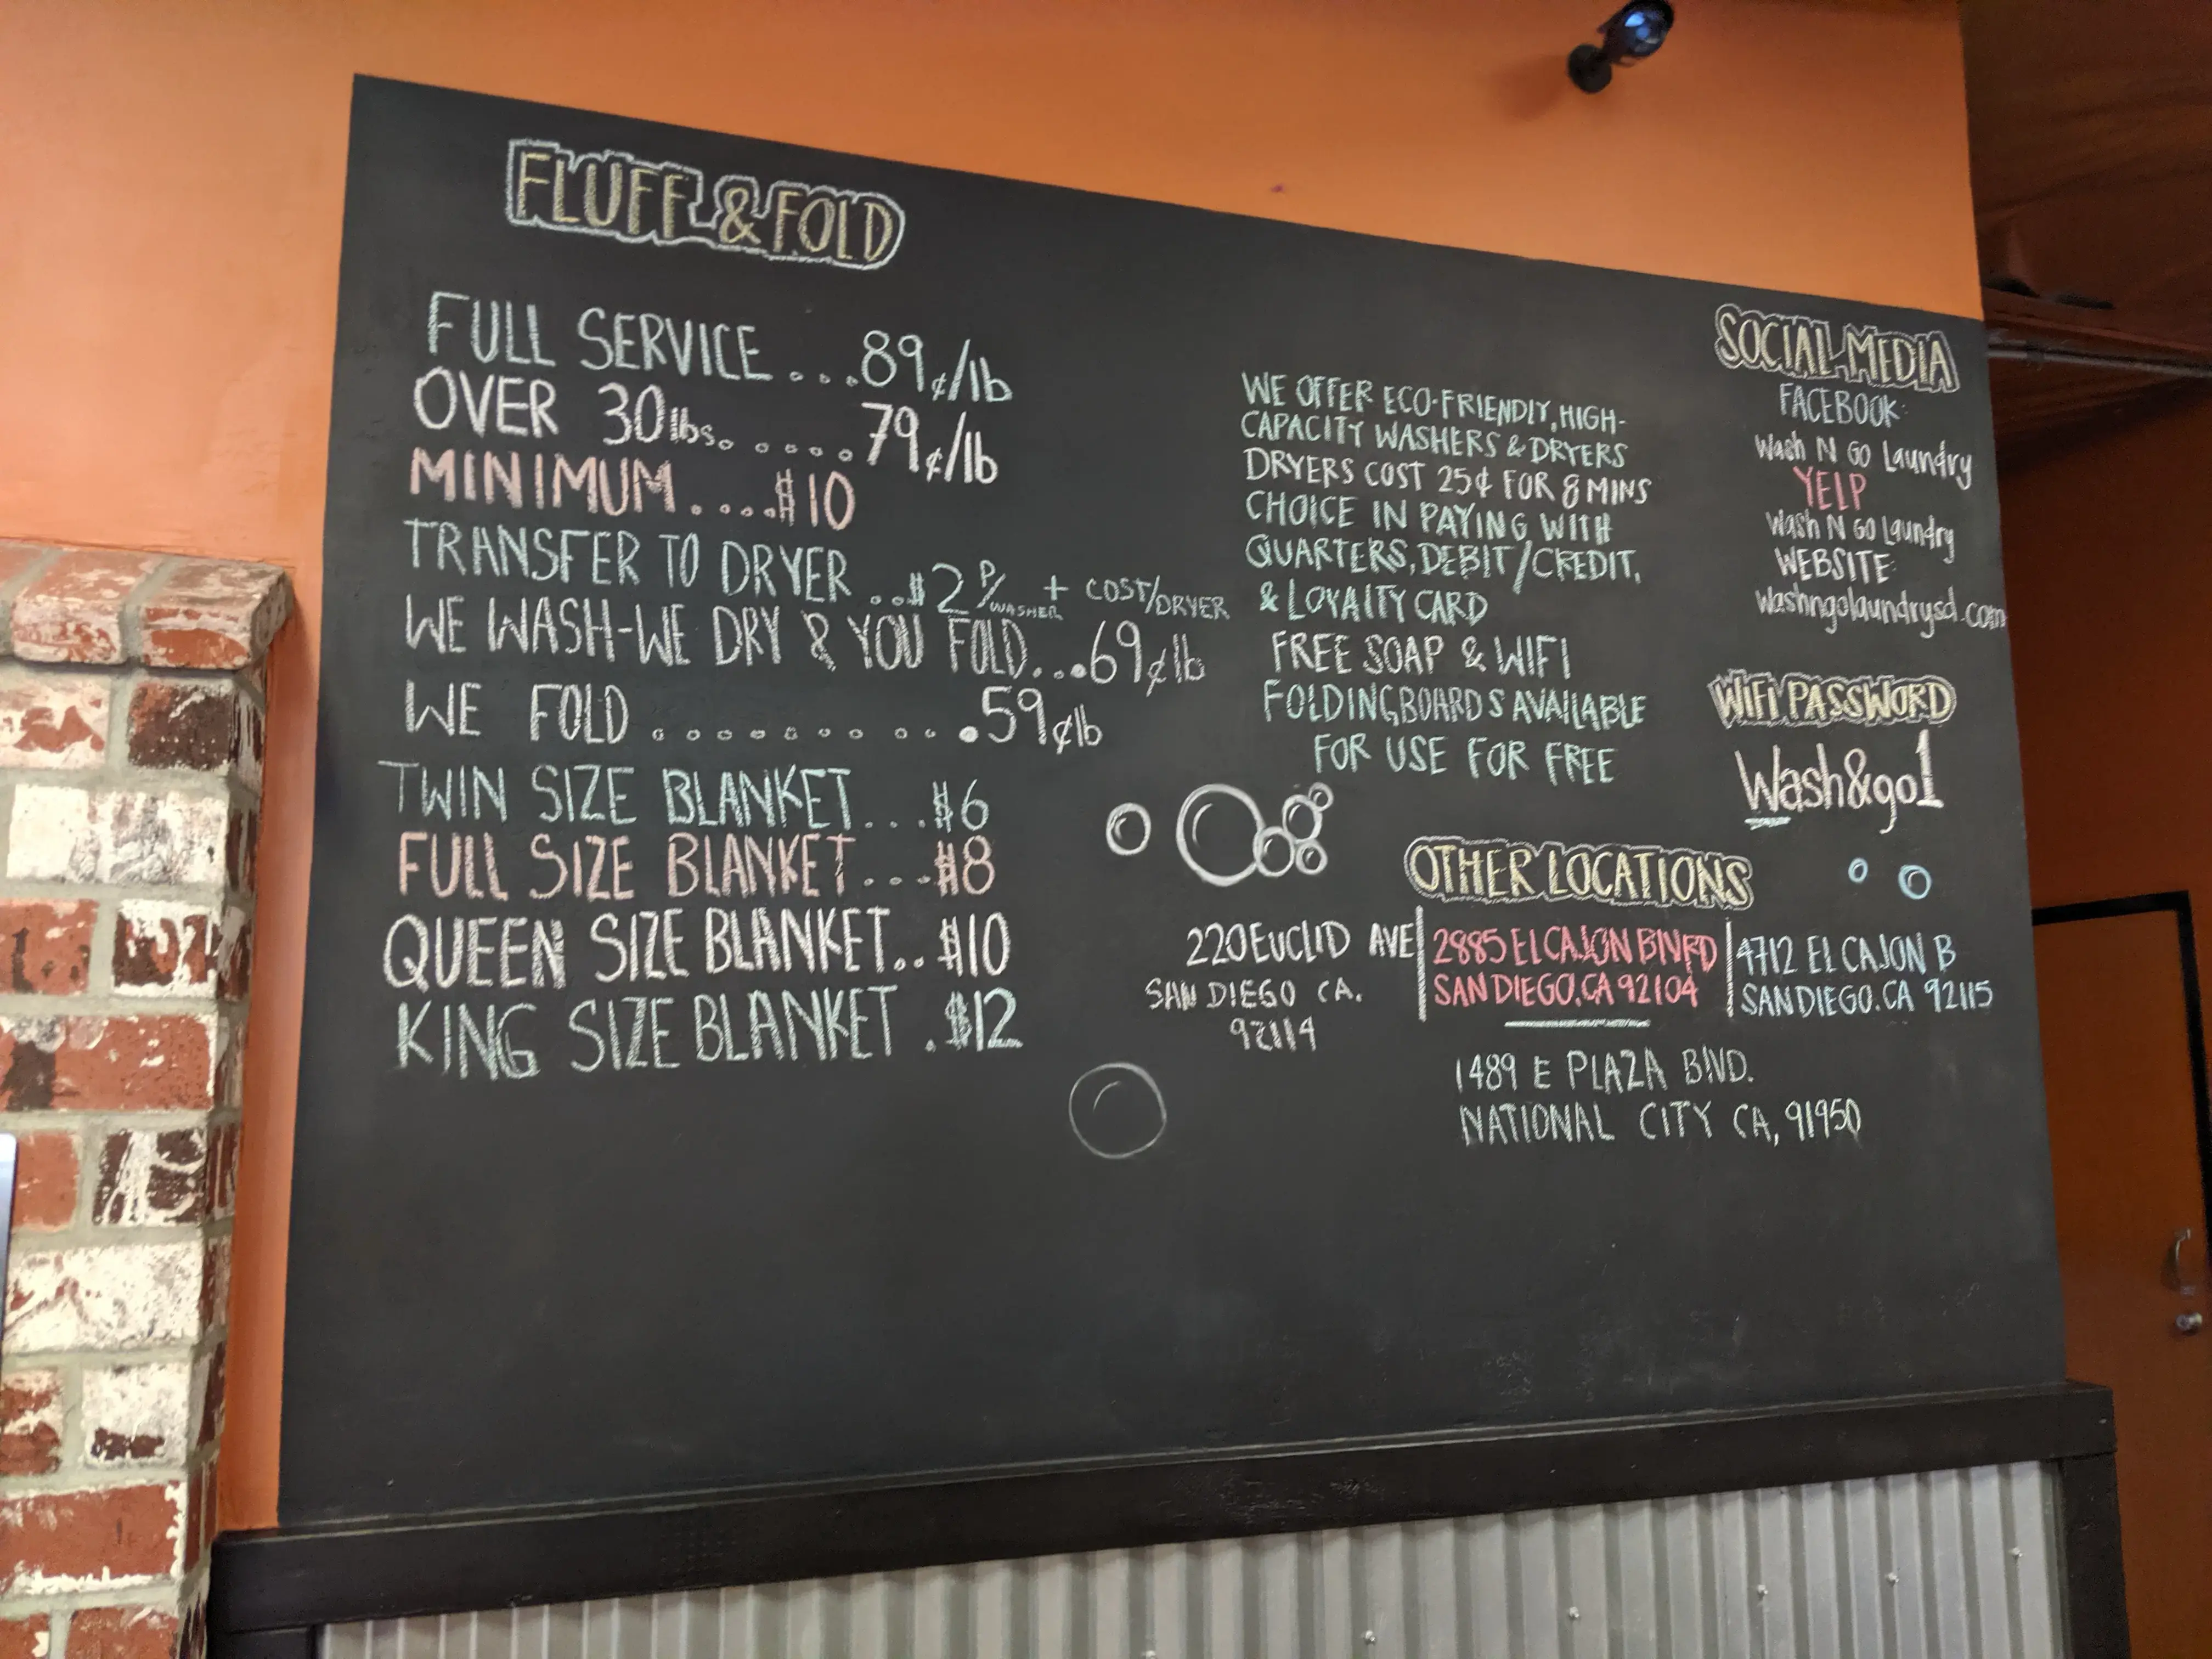 FLUFF & FOLD
FULL SERVICE...89¢/lb
OVER 30lbs......79¢/lb
MINIMUM.....$10
TRANSFER TO DRYER...$2 P/WASHER + COST/DRYER
WE WASH-WE DRY & YOU FOLD....69¢lb
WE FOLD ...........59¢lb
TWIN SIZE BLANKET...$6
FULL SIZE BLANKET...$8
QUEEN SIZE BLANKET..$10
KING SIZE BLANKET .$12
WE OFFER ECO-FRIENDLY, HIGH-
CAPACITY WASHERS & DRYERS
DRYERS COST 25¢ FOR 8 MINS
CHOICE IN PAYING WITH
QUARTERS, DEBIT/CREDIT,
& LOYALTY CARD
FREE SOAP & WIFI
FOLDING BOARDS AVAILABLE
FOR USE FOR FREE
SOCIAL MEDIA
FACEBOOK:
Wash N GO Laundry
YELP
Wash N GO Laundry
WEBSITE:
washngolaundrysd.com
WIFI PASSWORD
Wash&go1
OTHER LOCATIONS
220 EUCLID AVE
SAN DIEGO CA.
92114
2885 EL CAJON BLVD
SAN DIEGO, CA 92104
4712 EL CAJON B
SAN DIEGO, CA 92115
1489 E PLAZA BLVD.
NATIONAL CITY CA, 91950